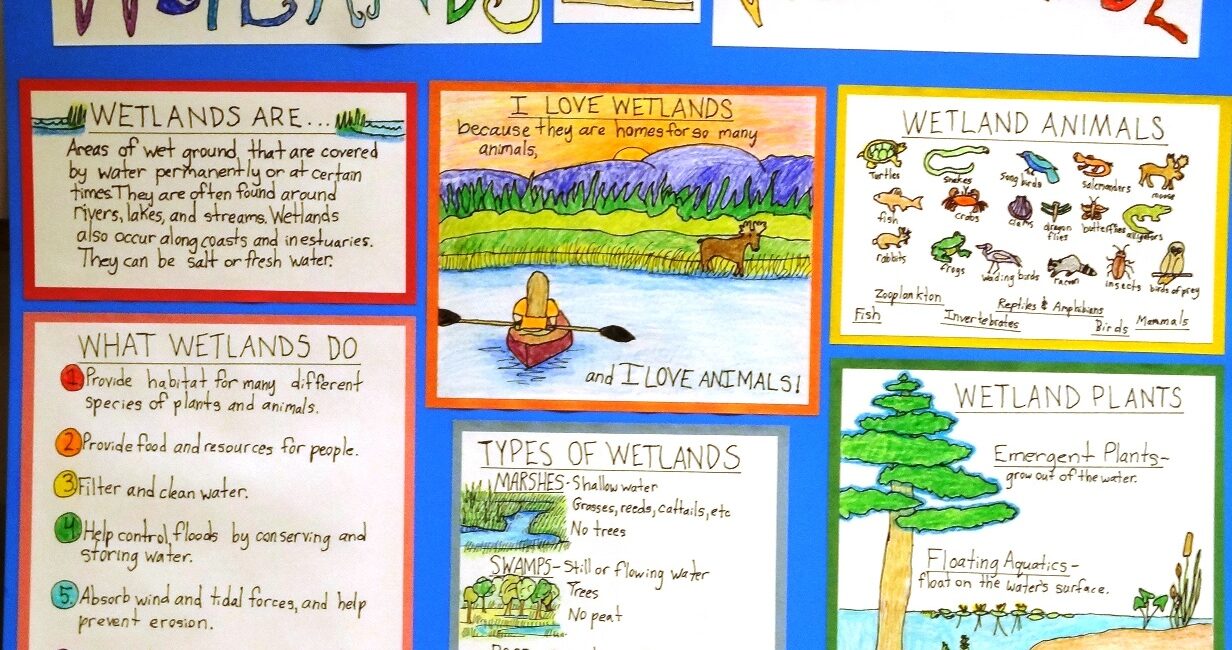 WETLANDS
WETLANDS ARE...
Areas of wet ground, that are covered
by water permanently or at certain
times. They are often found around
rivers, lakes, and streams. Wetlands
also occur along coasts and in estuaries.
They can be salt or fresh water.
WHAT WETLANDS DO
1. Provide habitat for many different
species of plants and animals.
2. Provide food and resources for people.
3. Filter and clean water.
4. Help control floods by conserving and
storing water.
5. Absorb wind and tidal forces, and help
prevent erosion.
I LOVE WETLANDS
because they are homes for so many
animals,
and I LOVE ANIMALS!
TYPES OF WETLANDS
MARSHES - Shallow water
Grasses, reeds, cattails, etc
No trees
SWAMPS - Still or flowing water
Trees
No peat
WETLAND ANIMALS
Turtles
snakes
Song birds
salamanders
moose
fish
crabs
clams
dragon
flies
butterflies
alligators
rabbits
frogs
wading birds
racoon
insects
birds of prey
Zooplankton
Reptiles & Amphibians
Fish
Invertebrates
Birds
Mammals
WETLAND PLANTS
Emergent Plants-
grow out of the water.
Floating Aquatics-
float on the water's surface.